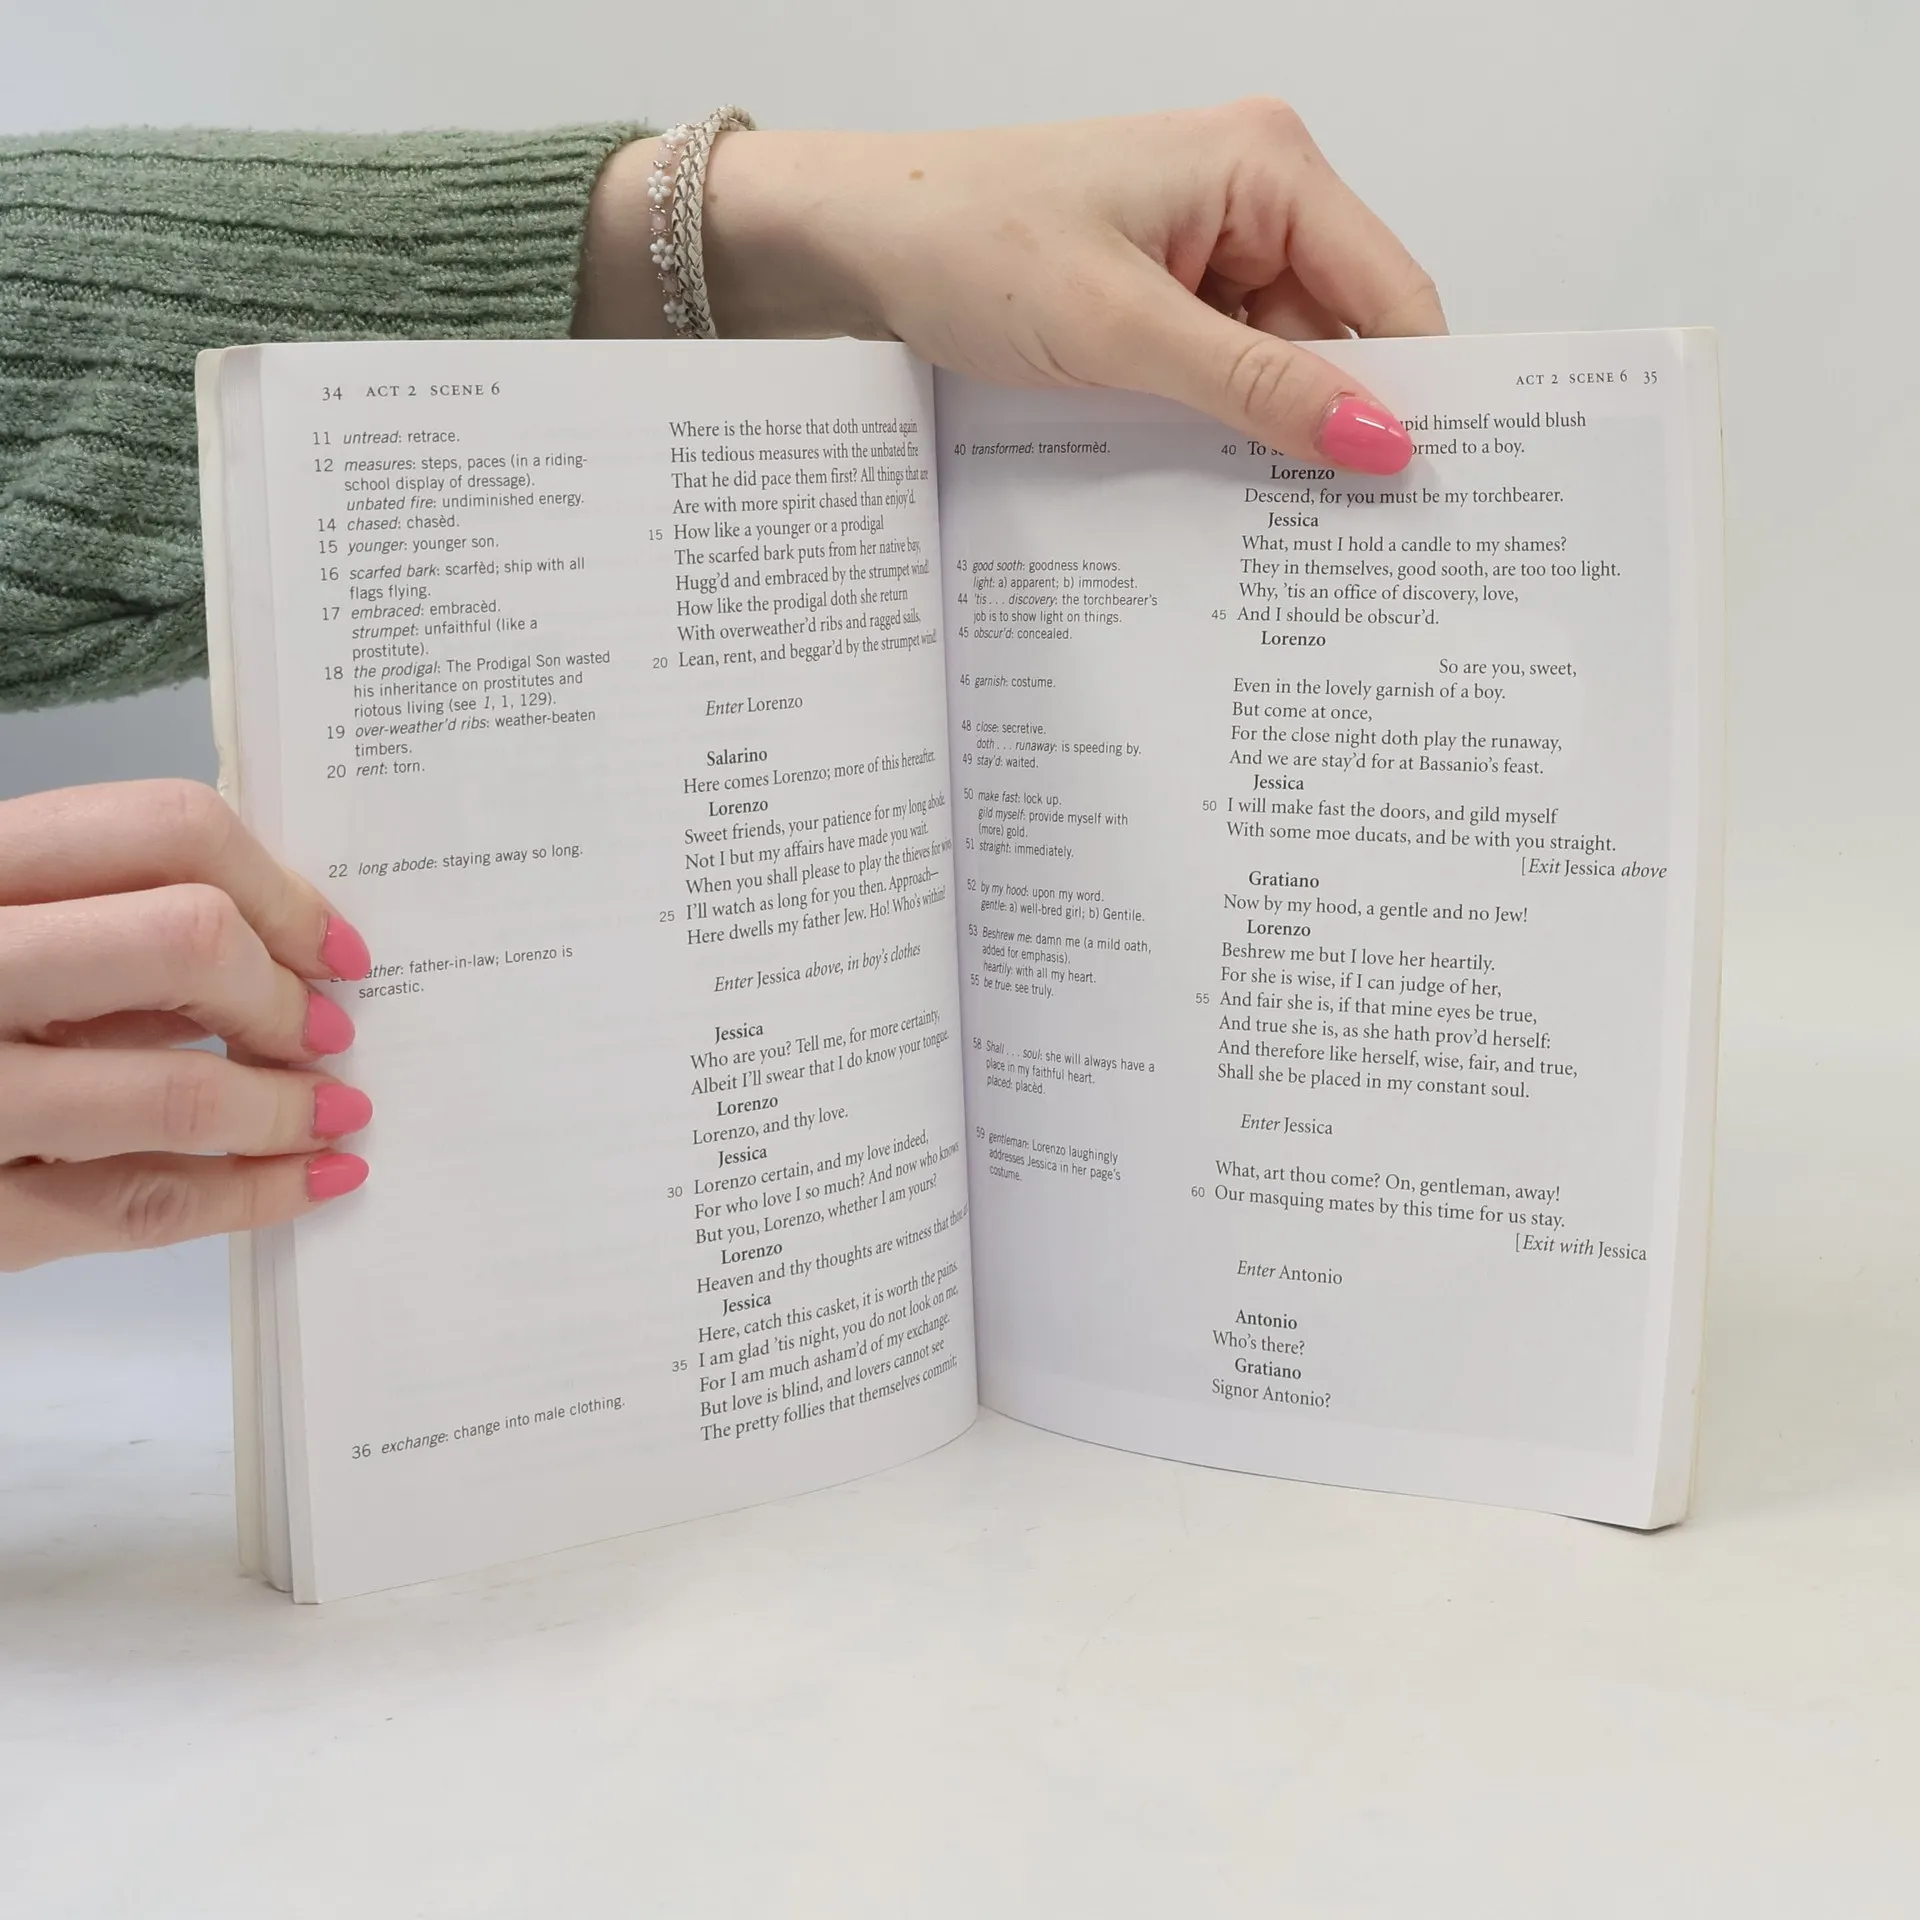 34 ACT 2 SCENE 6
11 untread: retrace.
12 measures: steps, paces (in a riding-
school display of dressage).
unbated fire: undiminished energy.
14 chased: chasèd.
15 younger: younger son.
16 scarfed bark: scarfèd; ship with all
flags flying.
17 embraced: embracèd.
strumpet: unfaithful (like a
prostitute).
18 the prodigal: The Prodigal Son wasted
his inheritance on prostitutes and
riotous living (see 1, 1, 129).
19 over-weather'd ribs: weather-beaten
timbers.
20 rent: torn.
22 long abode: staying away so long.
father-in-law; Lorenzo is
sarcastic.
36 exchange: change into male clothing.
Where is the horse that doth untread again
His tedious measures with the unbated fire
That he did pace them first? All things that are
Are with more spirit chased than enjoy'd.
15 How like a younger or a prodigal
The scarfed bark puts from her native bay,
Hugg'd and embraced by the strumpet wind!
How like the prodigal doth she return
With overweather'd ribs and ragged sails,
20 Lean, rent, and beggar'd by the strumpet wind!
Enter Lorenzo
Salarino
Here comes Lorenzo; more of this hereafter.
Lorenzo
Sweet friends, your patience for my long abode.
Not I but my affairs have made you wait.
When you shall please to play the thieves for
25 I'll watch as long for you then. Approach—
Here dwells my father Jew. Ho! Who's within!
Enter Jessica above, in boy's clothes
Jessica
Who are you? Tell me, for more certainty,
Albeit I'll swear that I do know your tongue.
Lorenzo
Lorenzo, and thy love.
Jessica
30 Lorenzo certain, and my love indeed,
For who love I so much? And now who knows
But you, Lorenzo, whether I am yours?
Lorenzo
Heaven and thy thoughts are witness that thou
Jessica
Here, catch this casket, it is worth the pains.
35 I am glad 'tis night, you do not look on me,
For I am much asham'd of my exchange.
But love is blind, and lovers cannot see
The pretty follies that themselves commit;
ACT 2 SCENE 6 35
40 transformed: transformèd.
43 good sooth: goodness knows.
light: a) apparent; b) immodest.
44 'tis . . . discovery: the torchbearer's
job is to show light on things.
45 obscur'd: concealed.
46 garnish: costume.
48 close: secretive.
doth . . . runaway: is speeding by.
49 stay'd: waited.
50 make fast: lock up.
gild myself: provide myself with
(more) gold.
51 straight: immediately.
52 by my hood: upon my word.
gentle: a) well-bred girl; b) Gentile.
53 Beshrew me: damn me (a mild oath,
added for emphasis).
heartily: with all my heart.
55 be true: see truly.
58 Shall . . . soul: she will always have a
place in my faithful heart.
placed: placèd.
59 gentleman: Lorenzo laughingly
addresses Jessica in her page's
costume.
himself would blush
40 To to a boy.
Lorenzo
Descend, for you must be my torchbearer.
Jessica
What, must I hold a candle to my shames?
They in themselves, good sooth, are too too light.
Why, 'tis an office of discovery, love,
45 And I should be obscur'd.
Lorenzo
So are you, sweet,
Even in the lovely garnish of a boy.
But come at once,
For the close night doth play the runaway,
And we are stay'd for at Bassanio's feast.
Jessica
50 I will make fast the doors, and gild myself
With some moe ducats, and be with you straight.
[Exit Jessica above
Gratiano
Now by my hood, a gentle and no Jew!
Lorenzo
Beshrew me but I love her heartily.
For she is wise, if I can judge of her,
55 And fair she is, if that mine eyes be true,
And true she is, as she hath prov'd herself:
And therefore like herself, wise, fair, and true,
Shall she be placed in my constant soul.
Enter Jessica
What, art thou come? On, gentleman, away!
60 Our masquing mates by this time for us stay.
[Exit with Jessica
Enter Antonio
Antonio
Who's there?
Gratiano
Signor Antonio?